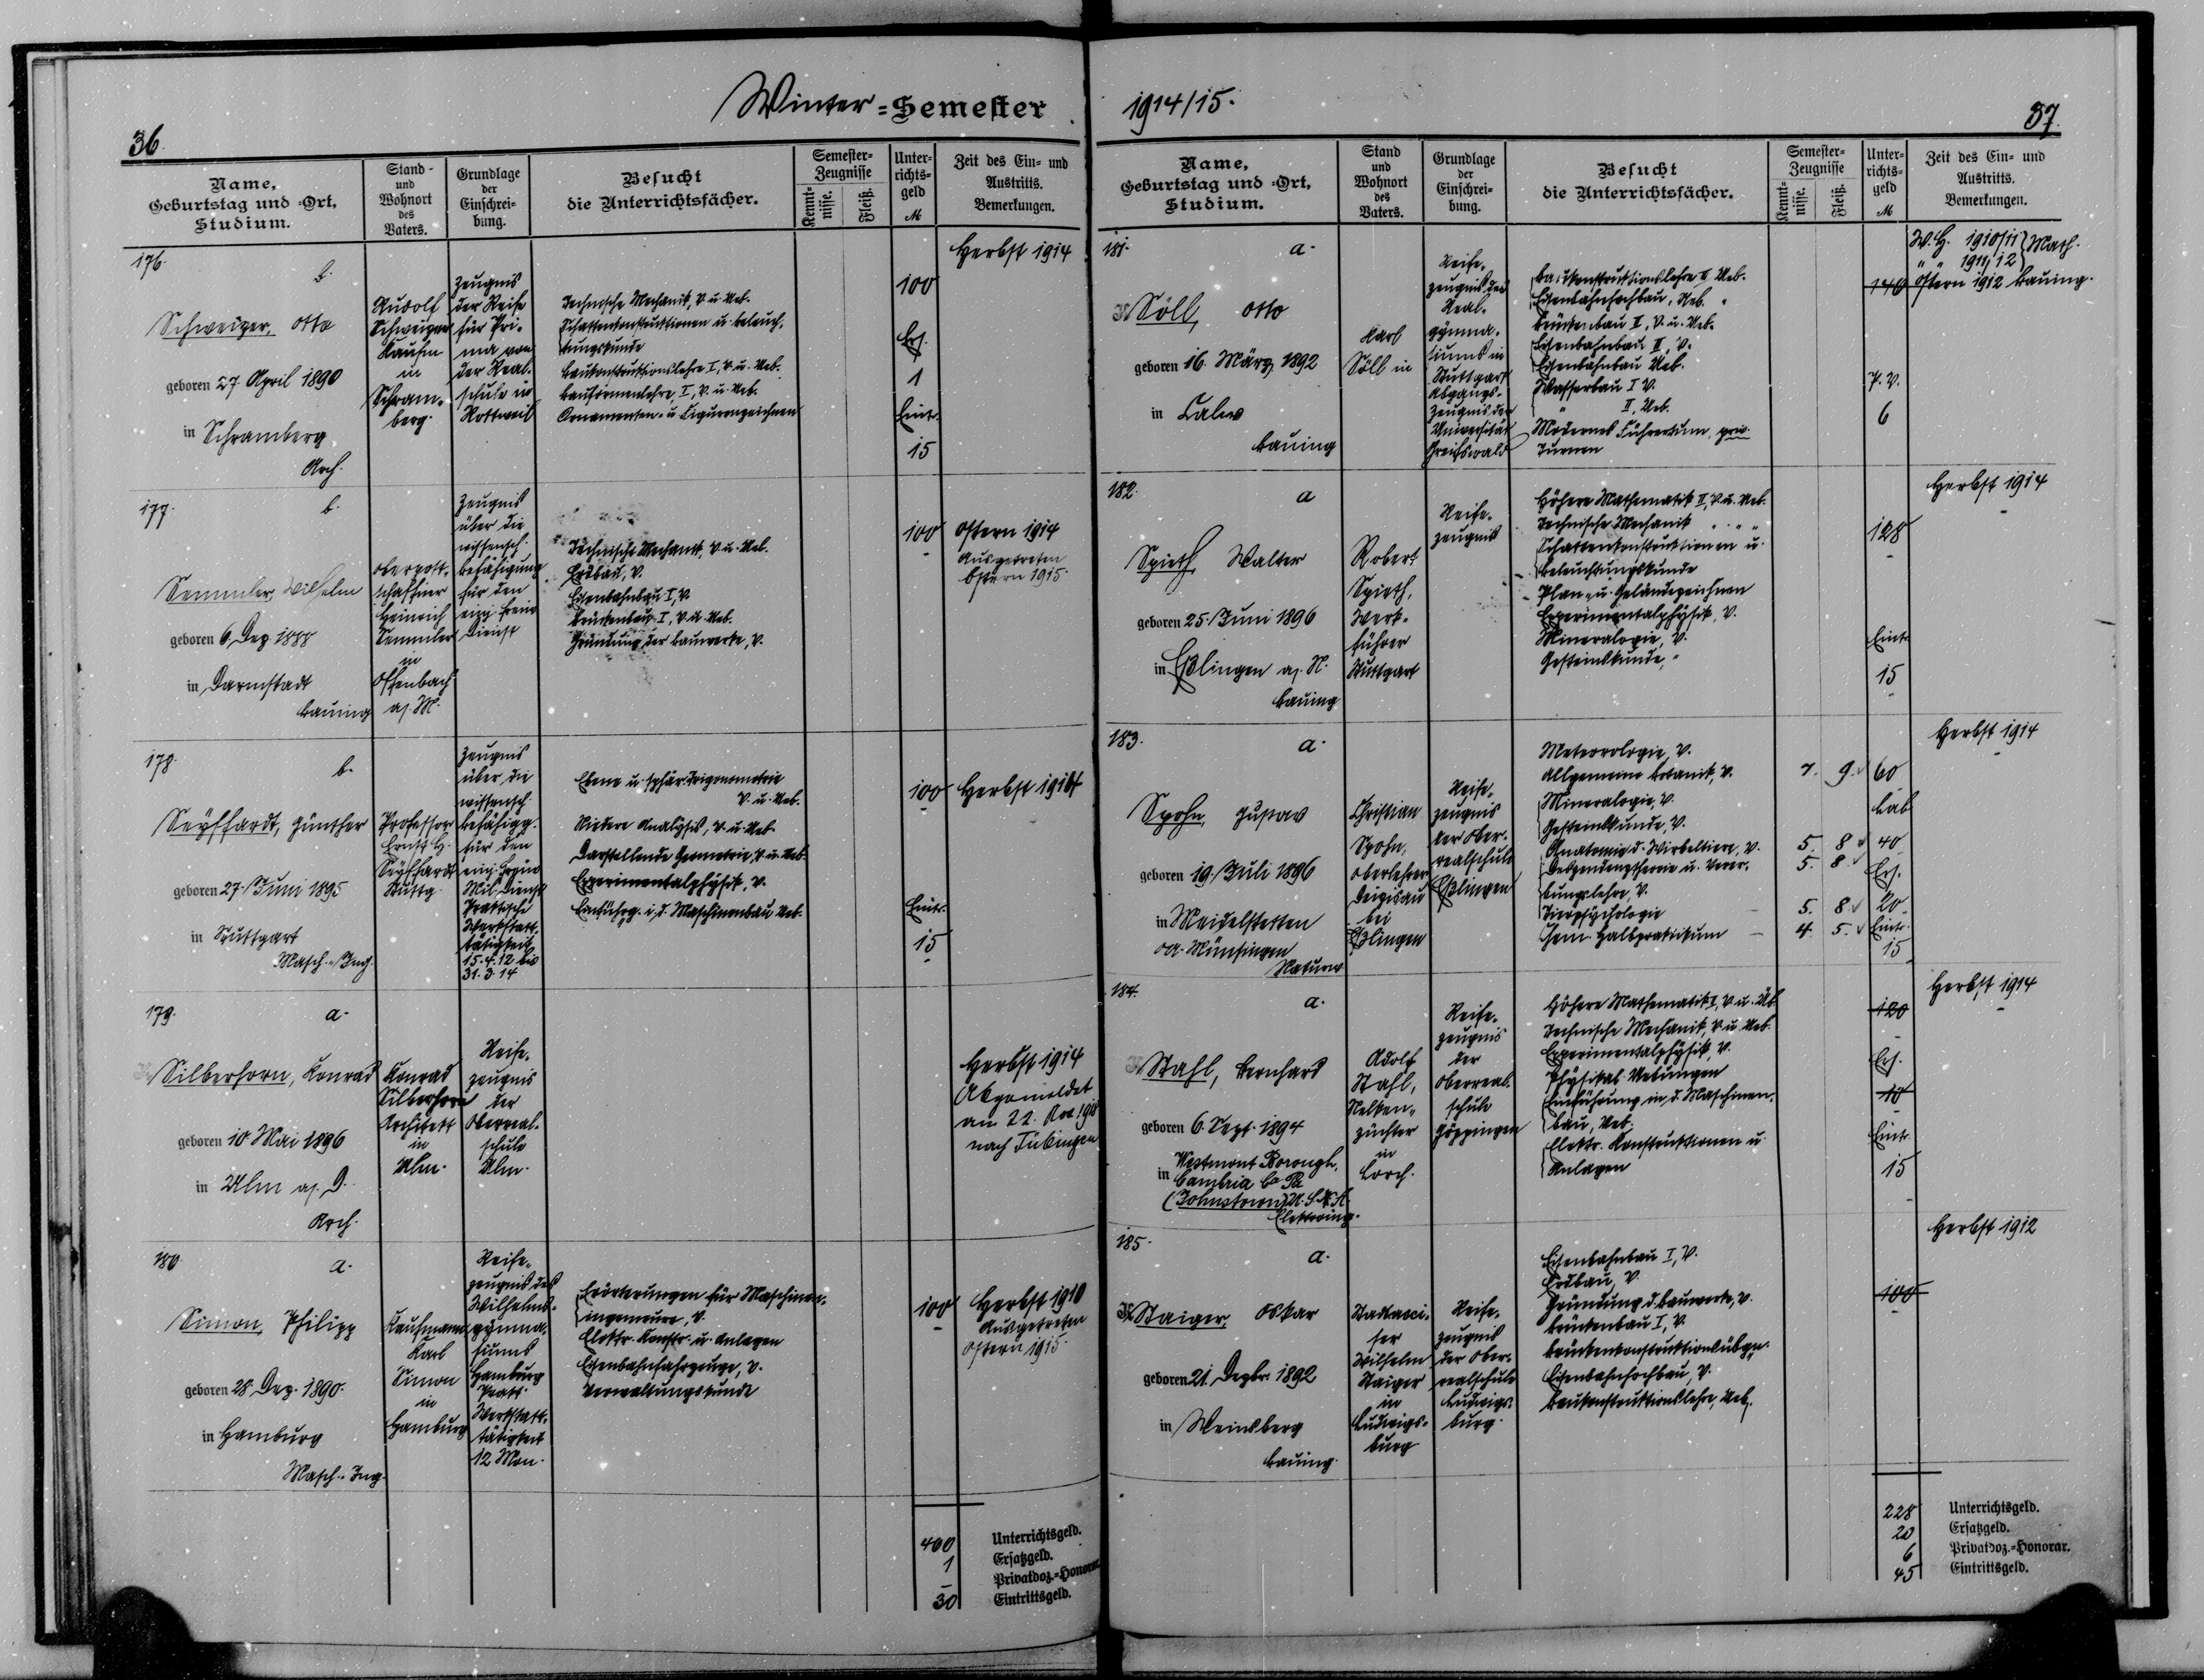 Winter-Semester
36.
Name,
Geburtstag und -Ort,
Studium.
Stand-
und
Wohnort
des
Vaters.
Grundlage
der
Einschrei-
bung.
Besucht
die Unterrichtsfächer.
Semester-
Zeugnisse
Kennt-
nisse.
Fleiß.
Unter-
richts-
geld
M
Zeit des Ein- und
Austritts.
Bemerkungen.
176.
b.
Schweizer, Otto
geboren 27 April 1890
in Schramberg
Arch.
Rudolf
Schweizer
Kaufm
in
Schram-
berg.
Zeugnis
der Reife
für Pri-
ma von
der Real-
schule in
Rottweil
Technische Mechanik, V. u. Ueb.
Schattenkonstruktionen u. Beleuch-
tungskunde
Baukonstruktionslehre I, V. u. Ueb.
Bauformenlehre, I, V. u. Ueb.
Ornamenten- u. Figurenzeichnen
100
Ers.
1
Eintr.
15
Herbst 1914
177.
b.
Semmler, Wilhelm
geboren 6. Dez 1888
in Darmstadt
Bauing
Oberpost-
schaffner
Heinrich
Semmler
in
Offenbach
a/M.
Zeugnis
über die
wissensch.
Befähigung
für den
einj. freiw
Dienst
Technische Mechanik, V. u. Ueb.
Erdbau, V.
Eisenbahnbau I, V
Brückenbau I, V. u. Ueb.
Gründung der Bauwerke, V.
100
Ostern 1914
Ausgetreten
Ostern 1915.
178.
b.
Seyffardt, Günther
geboren 27. Juni 1895
in Stuttgart
Masch.-Ing.
Professor
Ernst H.
Seyffardt
Stuttg.
Zeugnis
über die
wissensch.
Befähigg.
für den
einj. freiw
Mil. Dienst
Praktische
Werkstatt-
tätigkeit
15.4.12 bis
31.3.14
Ebene u. sphär. Trigonometrie
V. u. Ueb.
Niedere Analysis, V. u. Ueb.
Darstellende Geometrie, V. u. Ueb.
Experimentalphysik, V.
Einführg. i. d. Maschinenbau Ueb.
100
Eintr.
15
Herbst 1914
179.
a.
Silberhorn, Konrad
geboren 10. Mai 1896
in Ulm a/D.
Arch.
Konrad
Silberhorn
Architekt
in
Ulm.
Reife-
zeugnis
der
Oberreal-
schule
Ulm.
Herbst 1914
Abgemeldet
am 22.
nach Tübingen
180.
a.
Simon, Philipp
geboren 28. Dez. 1890.
in Hamburg
Masch.-Ing.
Kaufmann
Karl
Simon
in
Hamburg
Reife-
zeugnis des
Wilhelms-
gymna-
siums
Hamburg
Prakt.
Werkstatt-
tätigkeit
12 Mon.
Erörterungen für Maschinen-
ingenieure, V.
Elektr. Konstr. u. Anlagen
Eisenbahnfahrzeuge, V.
Verwaltungskunde
100
Herbst 1910
Ausgetreten
Ostern 1915.
400 Unterrichtsgeld.
1 Ersatzgeld.
– Privatdoz.-Honorar.
30 Eintrittsgeld.
1914/15.
37.
Name,
Geburtstag und -Ort,
Studium.
Stand
und
Wohnort
des
Vaters.
Grundlage
der
Einschrei-
bung.
Besucht
die Unterrichtsfächer.
Semester-
Zeugnisse
Kennt-
nisse.
Fleiß.
Unter-
richts-
geld
M
Zeit des Ein- und
Austritts.
Bemerkungen.
181.
a.
Söll, Otto
geboren 16. März 1892
in Calw
Bauing
Karl
Söll in
Reife-
zeugnis des
Real-
gymna-
siums in
Stuttgart
Abgangs-
zeugnis der
Universität
Greifswald
Baukonstruktionslehre II Ueb.
Eisenbahnhochbau, Ueb. "
Brückenbau II, V. u. Ueb.
Eisenbahnbau II, V.
Eisenbahnbau Ueb.
Wasserbau I V.
" II, Ueb.
Modernes Führertum, priv.
Turnen
140
P. V.
6
W. H. 1910/11 } Math.
" " 1911/12
Ostern 1912 Bauing.
182.
a
Spieth, Walter
geboren 25. Juni 1896
in Eßlingen a/N.
Bauing
Robert
Spieth,
Werk-
führer
Stuttgart
Reife-
zeugnis
Höhere Mathematik II, V. u. Ueb.
Technische Mechanik " " "
Schattenkonstruktionen u.
Beleuchtungskunde
Plan- u. Geländezeichnen
Experimentalphysik, V.
Mineralogie, V.
Gesteinskunde, "
128
Eintr.
15
Herbst 1914
183.
a.
Spohn, Gustav
geboren 19. Juli 1896
in Meidelstetten
OA. Münsingen
Naturw
Christian
Spohn,
Oberlehrer
Deizisau
bei
Eßlingen
Reife-
zeugnis
der Ober-
realschule
Eßlingen
Meteorologie, V.
Allgemeine Botanik, V. 7. 9.
Mineralogie, V.
Gesteinskunde, V.
Anatomie d. Wirbeltiere, V. 5. 8
Deszendenztheorie u. Verer- 5. 8
bungslehre, V.
Tierpsychologie 5. 8.
Chem. Halbpraktikum 4. 5.
60
Lab
40
Ers.
20
Eintr.
15
Herbst 1914
184.
a.
Stahl, Bernhard
geboren 6. Sept. 1894
in Westmont Borough,
Cambria Co Pa
(Johnstown) U. S. N. A.
Elektroing.
Adolf
Stahl,
Nelken-
züchter
in
Lorch.
Reife-
zeugnis
der
Oberreal-
schule
Göppingen
Höhere Mathematik I, V. u. Üb.
Technische Mechanik, V. u. Ueb.
Experimentalphysik, V.
Physikal. Uebungen
Einführung in d. Maschinen-
bau, Ueb.
Elektr. Konstruktionen u.
Anlagen
120
Ers.
10
Eintr.
15
Herbst 1914
185.
a.
Staiger, Oskar
geboren 21. Dezbr. 1892
in Weinsberg
Bauing.
Stadtacci-
ser
Wilhelm
Staiger
in
Ludwigs-
burg
Reife-
zeugnis
der Ober-
realschule
Ludwigs-
burg.
Eisenbahnbau I, V.
Erdbau, V.
Gründung d. Bauwerke, V.
Brückenbau I, V.
Brückenkonstruktionsübgn.
Eisenbahnhochbau, V.
Baukonstruktionslehre, Ueb.
100
Herbst 1912
228 Unterrichtsgeld.
20 Ersatzgeld.
6 Privatdoz.-Honorar.
45 Eintrittsgeld.